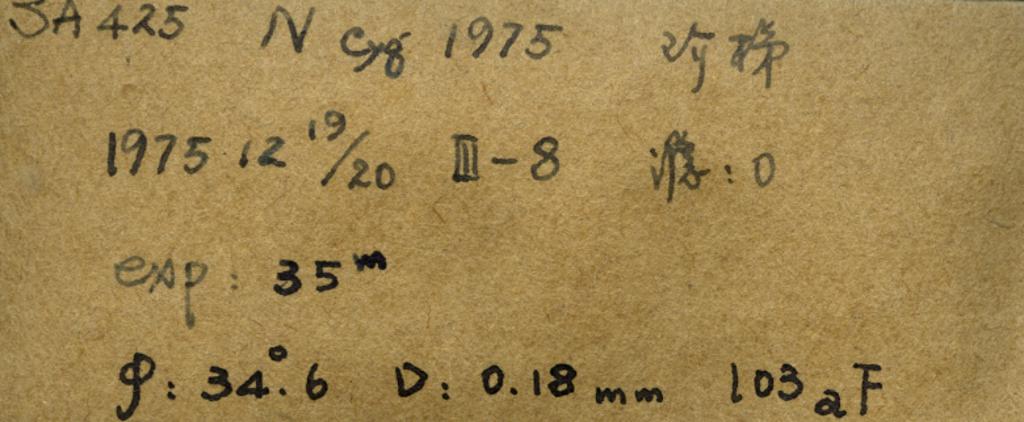 SA 425 N Cyg 1975 阶梯
1975 12 19/20 Ⅲ-8 : 0
exp: 35ᵐ
φ: 34°.6 D: 0.18 mm 103aF